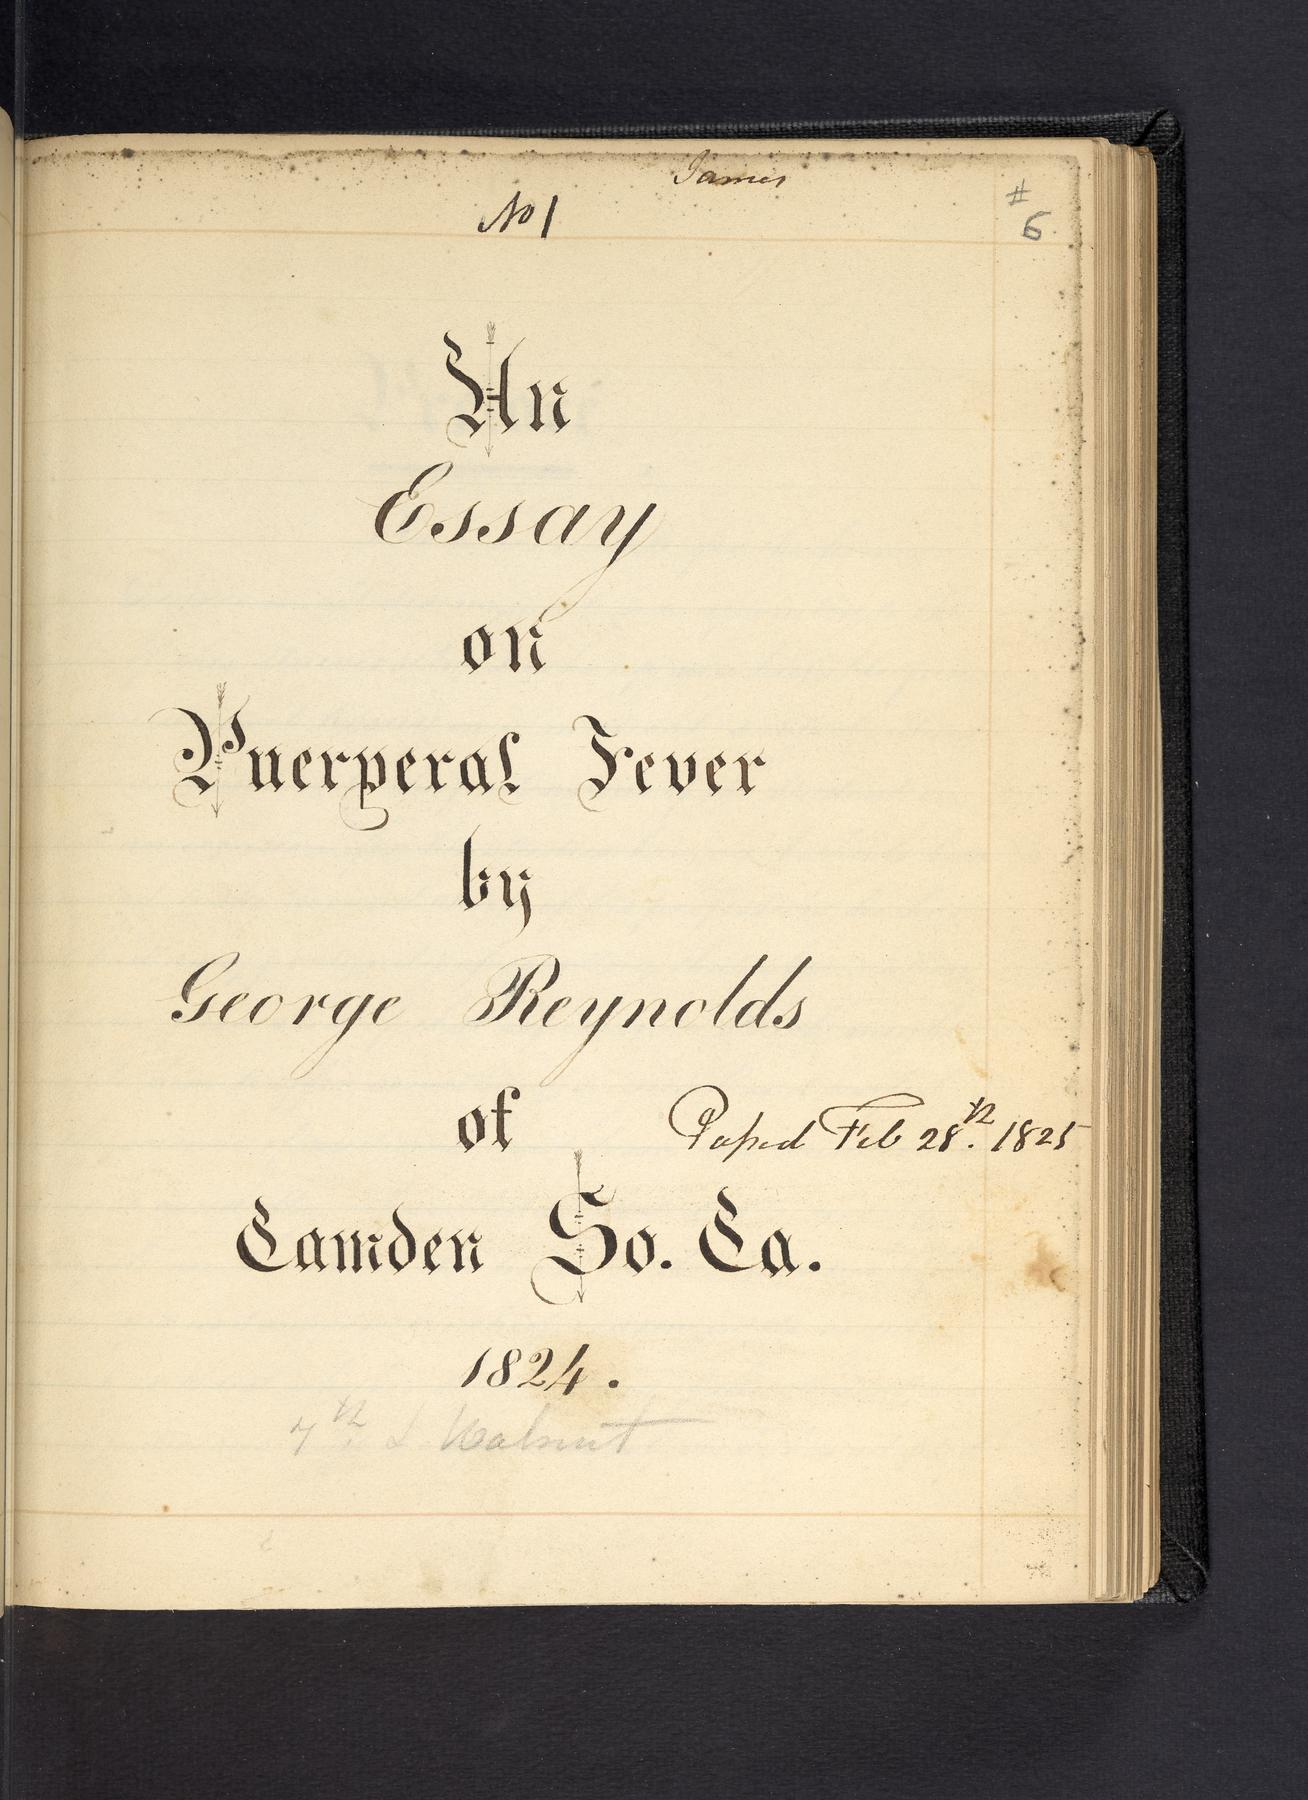 James
No 1
#
6
An
Essay
on
Puerperal Fever
by
George Reynolds
of
Passed Feb 28th. 1825
Camden So. Ca.
1824.
7th & Walnut